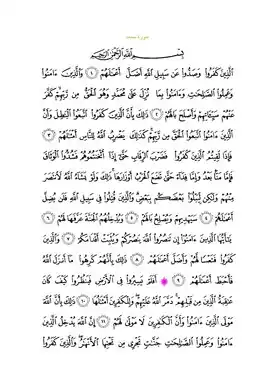 سورة محمد
بسم الله الرحمن الرحيم
الذين كفروا وصدوا عن سبيل الله أضل أعملهم ١ والذين ءامنوا
وعملوا الصلحت وءامنوا بما نزل على محمد وهو الحق من ربهم كفر
عنهم سيـاتهم وأصلح بالهم ٢ ذلك بأن الذين كفروا اتبعوا البطل وأن
الذين ءامنوا اتبعوا الحق من ربهم كذلك يضرب الله للناس أمثلهم ٣
فإذا لقيتم الذين كفروا فضرب الرقاب حتى إذا أثخنتموهم فشدوا الوثاق
فإما منا بعد وإما فداء حتى تضع الحرب أوزارها ذلك ولو يشاء الله لانتصر
منهم ولكن ليبلوا بعضكم ببعض والذين قتلوا في سبيل الله فلن يضل
أعملهم ٤ سيهديهم ويصلح بالهم ٥ ويدخلهم الجنة عرفها لهم ٦
يأيها الذين ءامنوا إن تنصروا الله ينصركم ويثبت أقدامكم ٧ والذين
كفروا فتعسا لهم وأضل أعملهم ٨ ذلك بأنهم كرهوا ما أنزل الله
فأحبط أعملهم ٩ أفلم يسيروا في الأرض فينظروا كيف كان
عقبة الذين من قبلهم دمر الله عليهم وللكفرين أمثلها ١٠ ذلك بأن الله
مولى الذين ءامنوا وأن الكفرين لا مولى لهم ١١ إن الله يدخل الذين
ءامنوا وعملوا الصلحت جنت تجري من تحتها الأنهر والذين كفروا